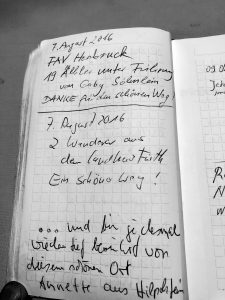 7. August 2016
FAV Hersbruck
19 Abler unter Führung
von Gaby
DANKE für den schönen Weg!
7. August 2016
2 Wanderer aus
dem Landkreis Fürth
Ein schöner Weg!
... und bin jedesmal
wieder tief beeindruckt von
diesem schönen Ort
Annette aus Hilpoltstein
09.0